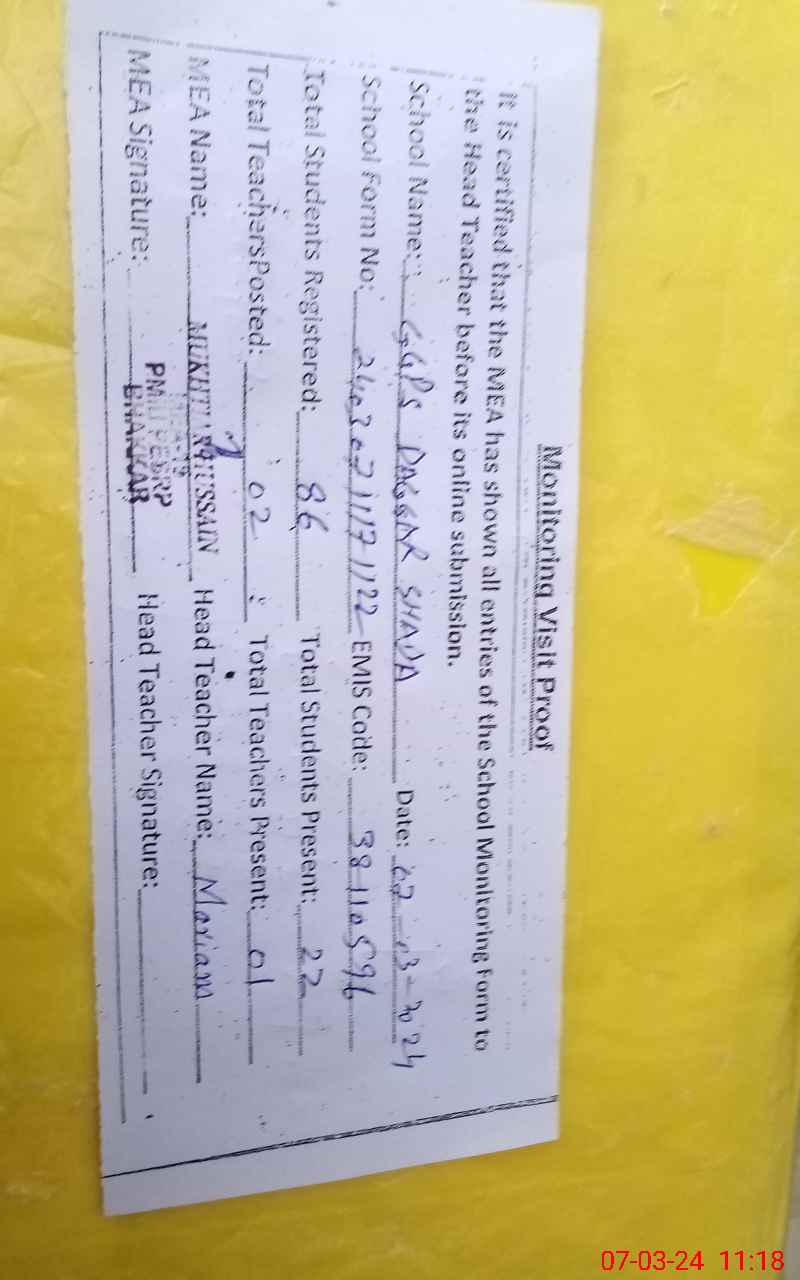 Monitoring Visit Proof
It is certified that the MEA has shown all entries of the School Monitoring Form to
the Head Teacher before its online submission.
School Name: GGPS DAGGAR SHADA Date: 07-03-2024
School Form No: EMIS Code: 38110596
Total Students Registered: 86 Total Students Present: 22
Total Teachers Posted: 02 Total Teachers Present: 01
MEA Name: MUKHTIAR HUSSAIN Head Teacher Name: Mariam
MEA Signature: Head Teacher Signature:
BHAKKAR
07-03-24 11:18